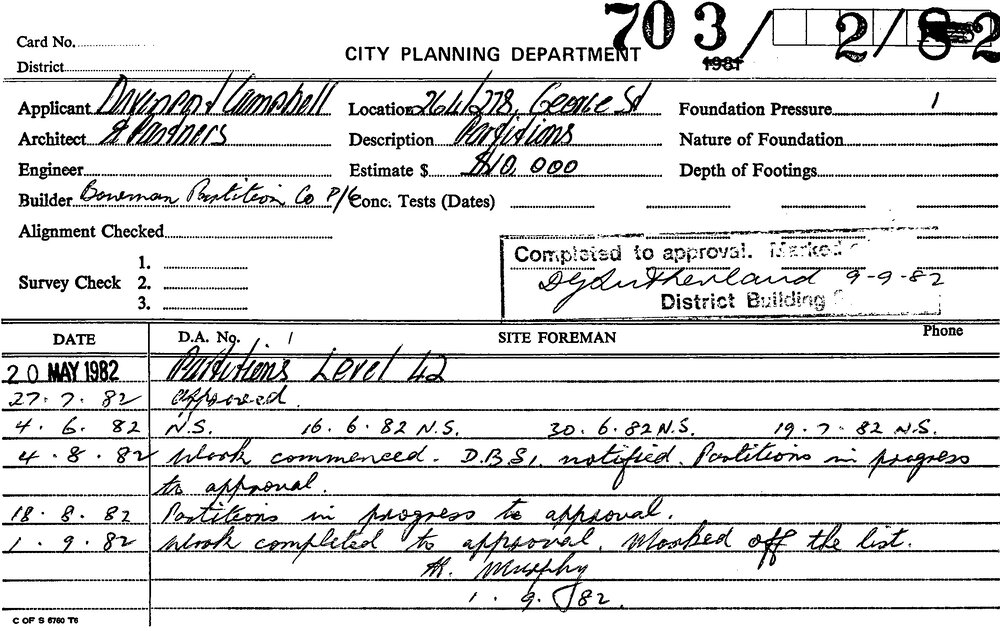 703/ 2/82
Card No.
CITY PLANNING DEPARTMENT 1981
District
Applicant Davenport Campbell Location 264/278, George St Foundation Pressure
Architect & Partners Description Partitions Nature of Foundation
Engineer Estimate $ $10,000 Depth of Footings
Builder Bowman Partition Co P/L Conc. Tests (Dates)
Alignment Checked
Completed to approval. Marked
Survey Check 1.
2.
3.
DGSutherland 9-9-82
District Building
DATE D.A. No. / SITE FOREMAN Phone
20 MAY 1982 Partitions Level 42
27.7.82 approved.
4.6.82 N.S. 16.6.82 N.S. 30.6.82 N.S. 19.7.82 N.S.
4.8.82 Work commenced. D.B.S. notified. Partitions in progress
to approval.
18.8.82 Partitions in progress to approval.
1.9.82 Work completed to approval. Marked off the list.
Murphy
1.9.82.
C OF S 6760 T6